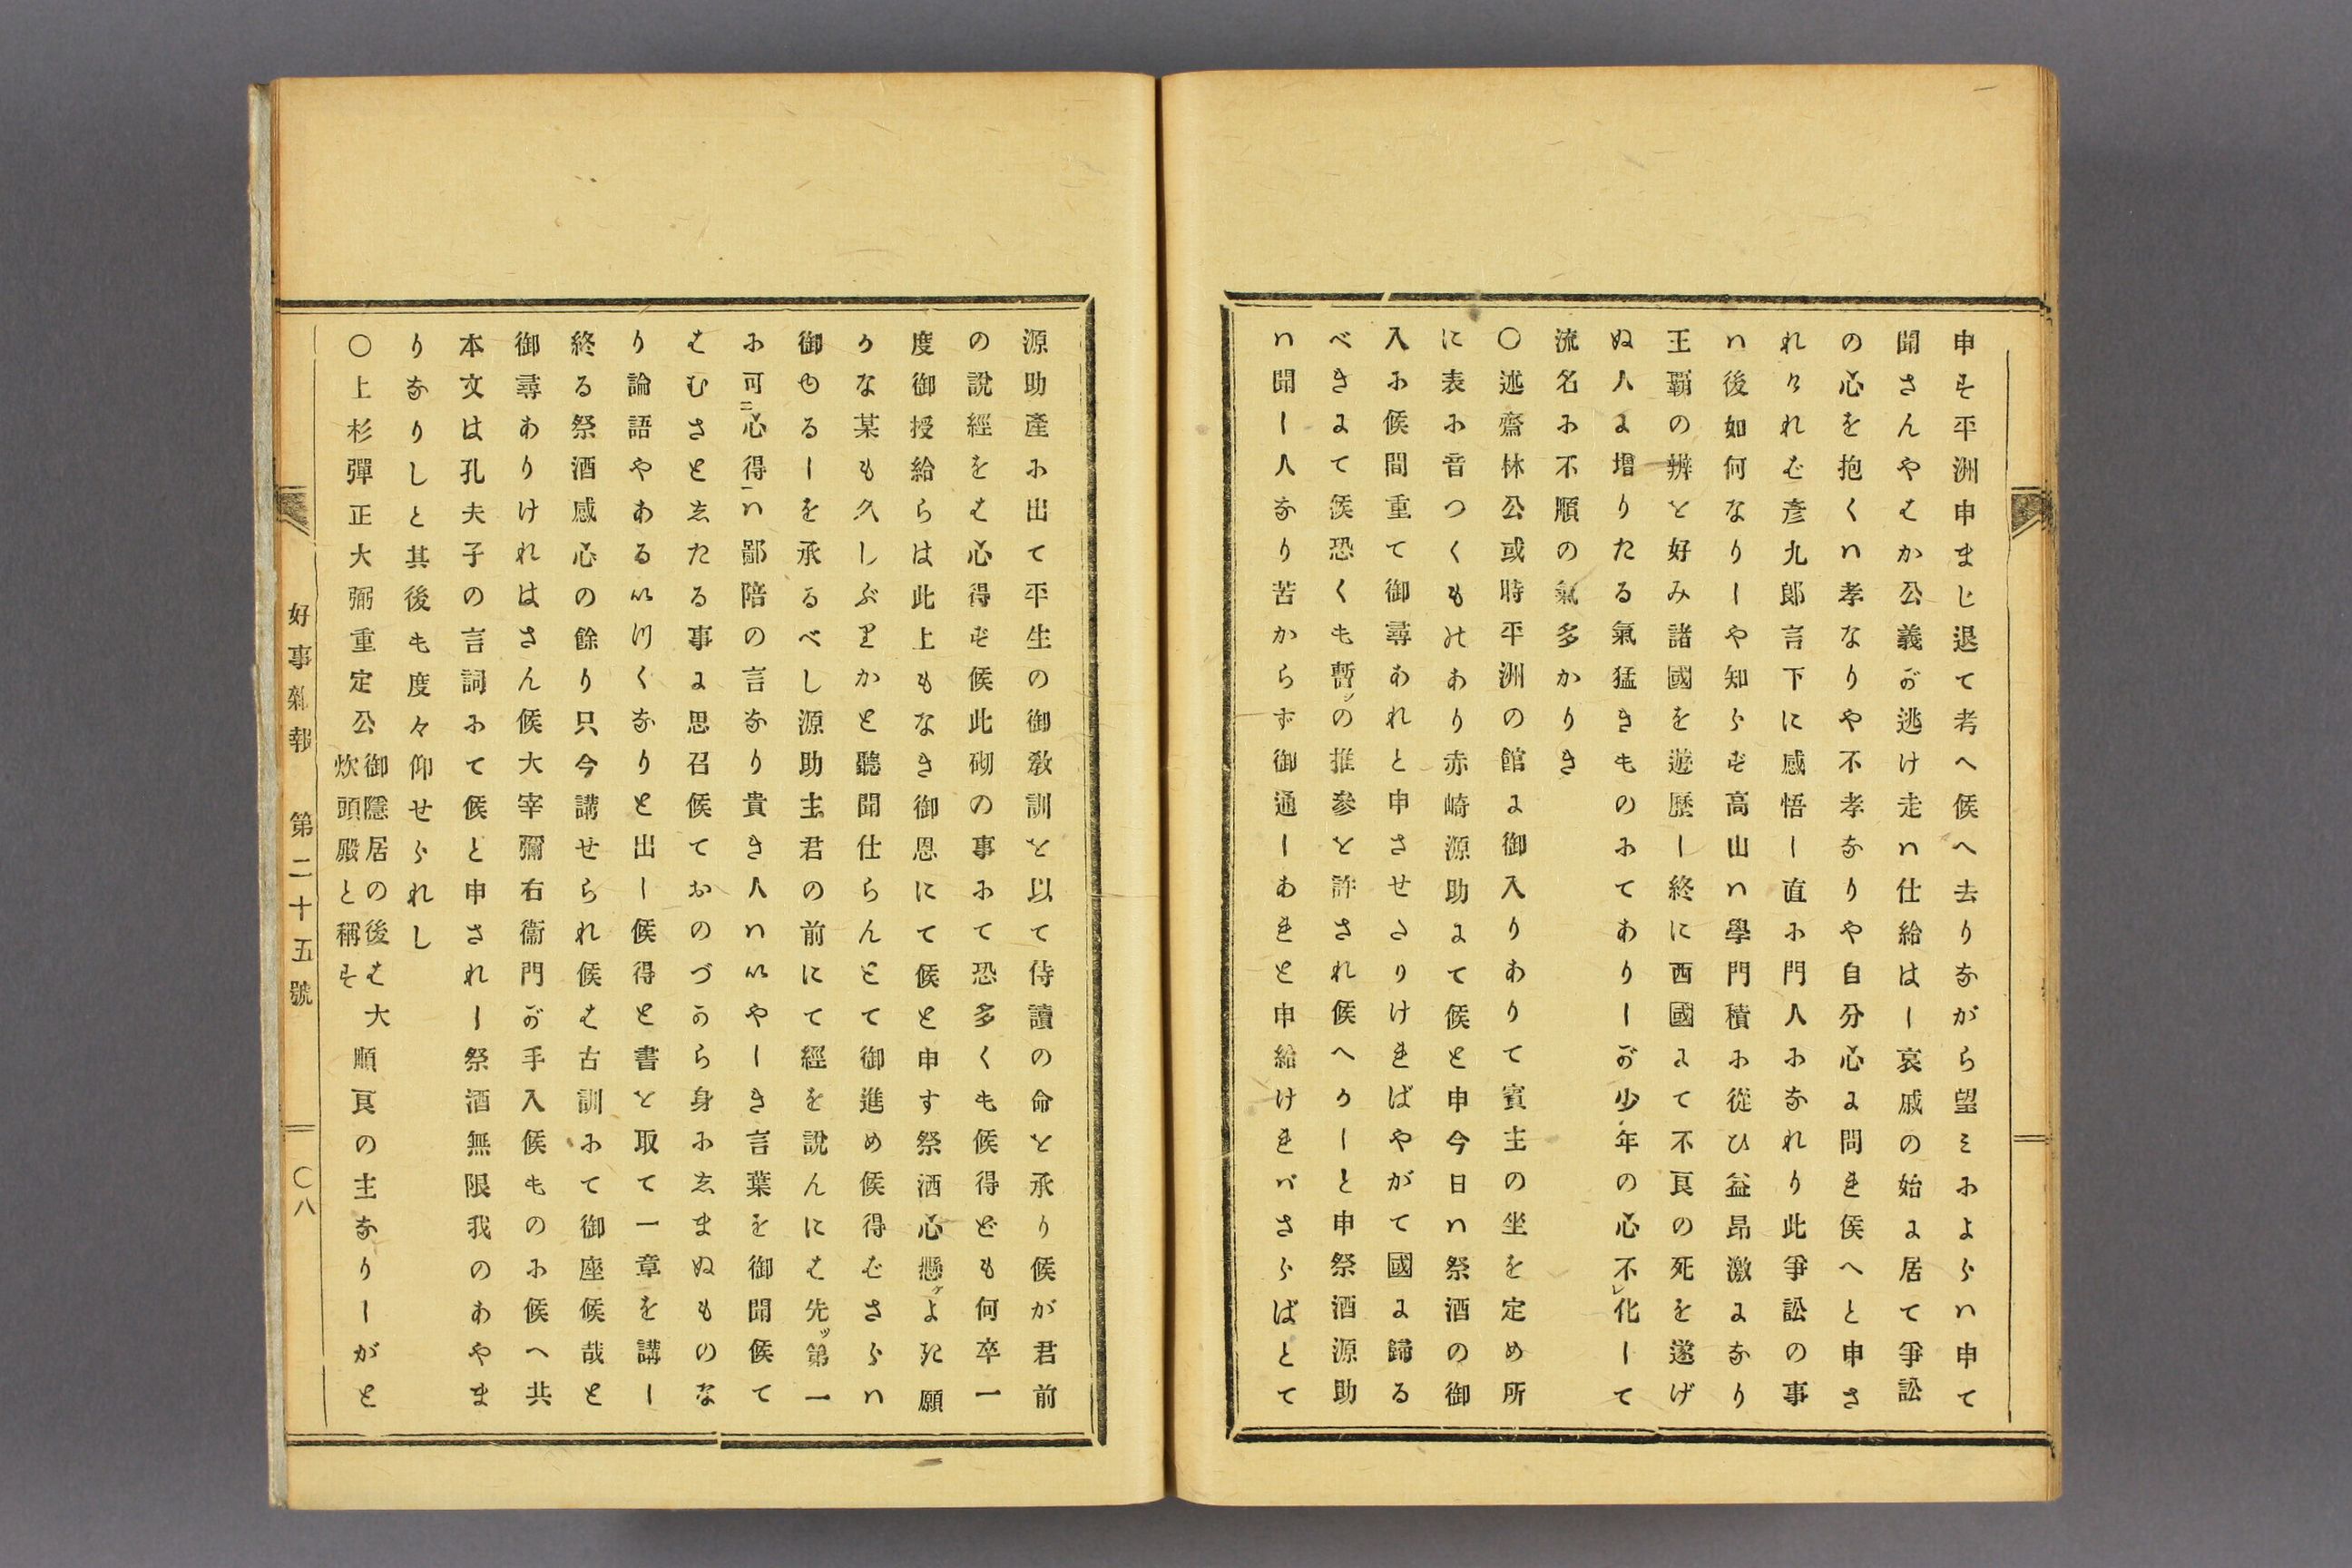 申す平洲申まじ退て考へ候へ去りながら望ミによらハ申て
聞さんやはか公義が逃け走ハ仕給はし哀戚の始に居て爭訟
の心を抱くハ孝なりや不孝なりや自分心に問き侯へと申さ
れけれむ彦九郎言下に感悟し直に門人になれり此爭訟の事
ハ後如何なりしや知らす高山ハ學門積に從ひ益昂激になり
王覇の辨を好み諸國を遊歴し終に西國にて不良の死を遂げ
ぬ人に增りたる氣猛きものにてありしが少年の心不レ化して
流名に不順の氣多かりき
〇述齋林公或時平洲の館に御入りありて賓主の坐を定め所
に表に音つくものあり赤崎源助にて候と申今日ハ祭酒の御
入に候間重て御尋あれと申させさりけきばやがて國に歸る
べきにて候恐くも暫シの推參を許され候へかしと申祭酒源助
ハ聞し人なり苦からず御通しあきと申給けきバさらばとて
源助產に出て平生の御敎訓を以て侍讀の命を承り候が君前
の說經をは心得す候此砌の事にて恐多くも候得ども何卒一
度御授給らは此上もなき御恩にて候と申す祭酒心懸ケよき願
かな某も久しぶりかと聽聞仕らんとて御進め候得むさらハ
御ゆるしを承るべし源助主君の前にて經を說んには先ツ第一
に可ニ心得一ハ鄙陪の言なり貴き人ハいやしき言葉を御聞候て
はむさとゑたる事に思召候ておのづから身にゑまぬものな
り論語やあるいづくなりと出し候得と書を取て一章を講し
終る祭酒感心の餘り只今講せられ候は古訓にて御座候哉と
御尋ありけれはさん候大宰彌右衞門が手入候ものに候へ共
本文は孔夫子の言詞にて候と申されし祭酒無限我のあやま
りなりしと其後も度々仰せられし
〇上杉彈正大弼重定公御隱居の後は大炊頭殿と稱す順良の主なりしがと
好事雜報　第二十五號　〇八